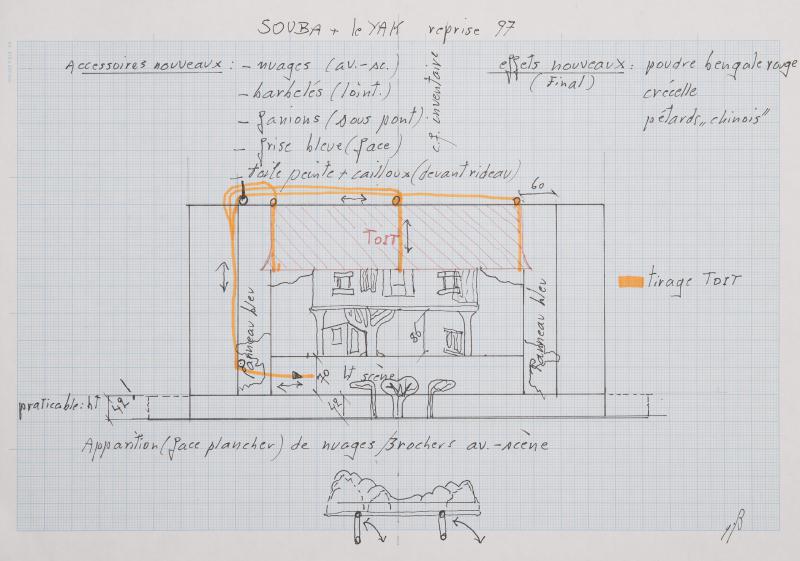 SOUBA + le YAK reprise 97
Accessoires nouveaux : – nuages (av.-sc.)
– barbelés (loint.)
– fanions (sous pont)
– frise bleue (face)
– toile peinte + cailloux (devant rideau)
c.f. inventaire
effets nouveaux : poudre bengale rouge
(Final)
crécelle
pétards „chinois"
60
TOIT
tirage TOIT
Panneau bleu
Panneau bleu
80
70
ht scène
praticable: ht
42
42
Apparition (face plancher) de nuages / 3 rochers av.-scène